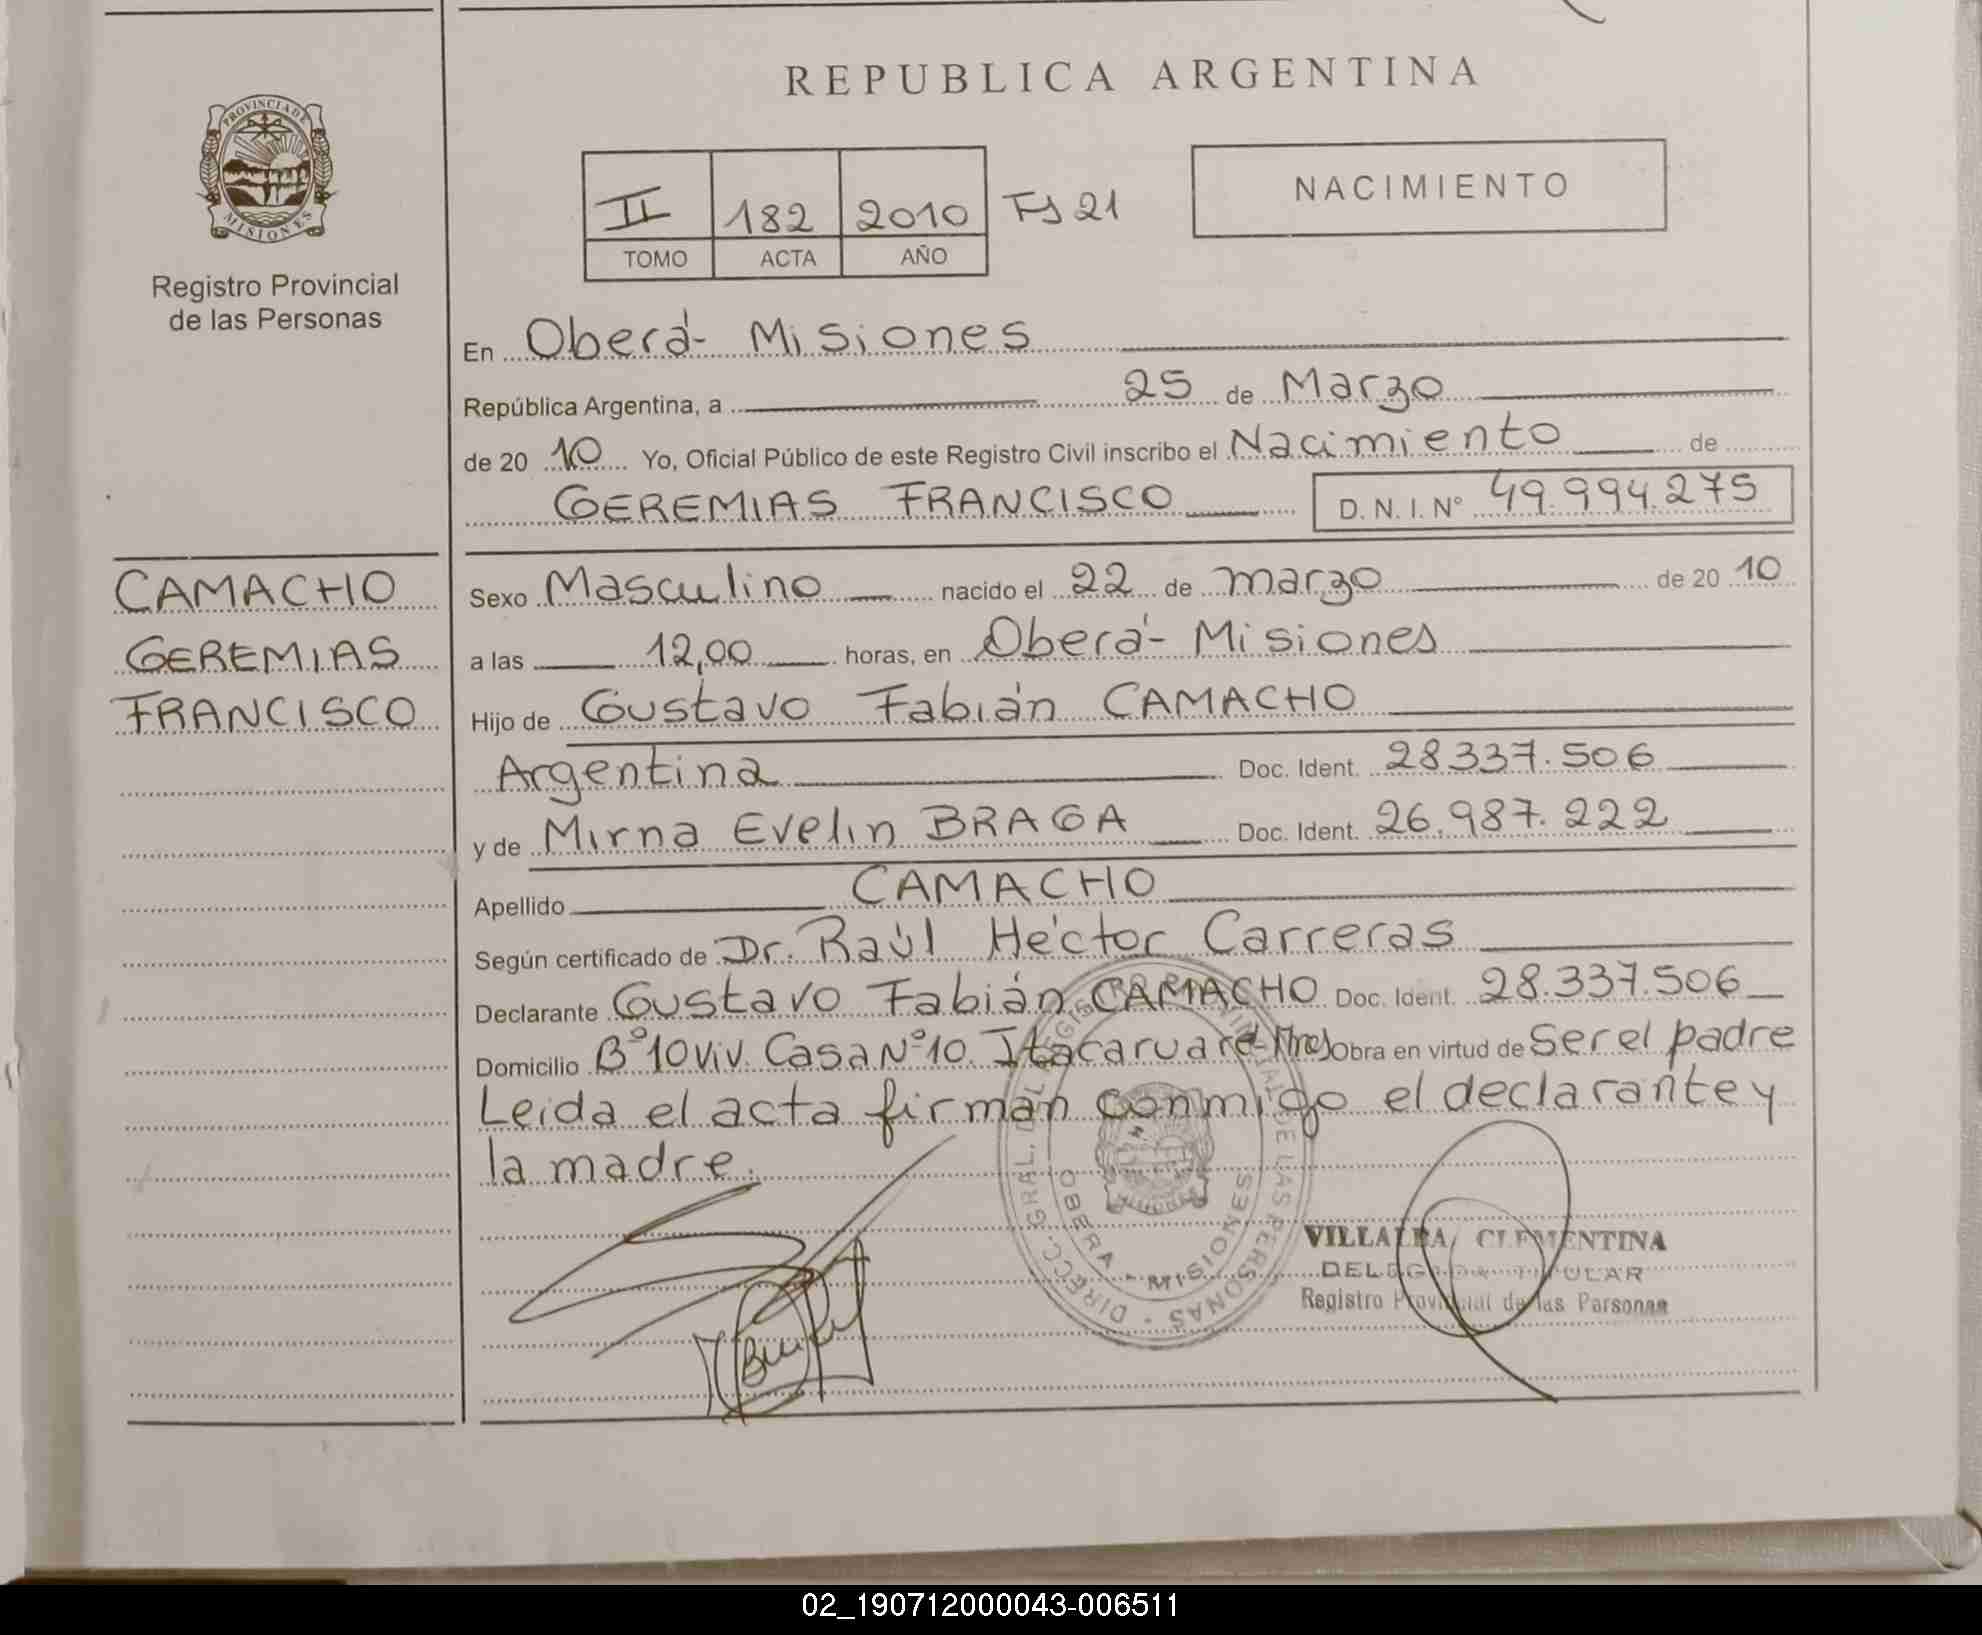 REPUBLICA ARGENTINA
PROVINCIA DE MISIONES
Registro Provincial
de las Personas
II 182 2010 Fs 21
TOMO ACTA AÑO
NACIMIENTO
En Oberá - Misiones
República Argentina, a 25 de Marzo
de 20 10 Yo, Oficial Público de este Registro Civil inscribo el Nacimiento de
GEREMIAS FRANCISCO D.N.I. Nº 49.994.275
CAMACHO
GEREMIAS
FRANCISCO
Sexo Masculino nacido el 22 de marzo de 20 10
a las 12,00 horas, en Oberá - Misiones
Hijo de Gustavo Fabián CAMACHO
Argentina Doc. Ident. 28.337.506
y de Mirna Evelin BRAGA Doc. Ident. 26.987.222
Apellido CAMACHO
Según certificado de Dr. Raúl Héctor Carreras
Declarante Gustavo Fabián CAMACHO Doc. Ident. 28.337.506
Domicilio Bº 10 Viv. Casa Nº 10. Itacaruaré - Mnes Obra en virtud de Ser el padre
Leida el acta firman conmigo el declarante y
la madre.
DIRECC. GRAL. DEL REGISTRO PROVINCIAL DE LAS PERSONAS
OBERA - MISIONES
VILLALBA CLEMENTINA
DELEGADA TITULAR
Registro Provincial de las Personas
02_190712000043-006511